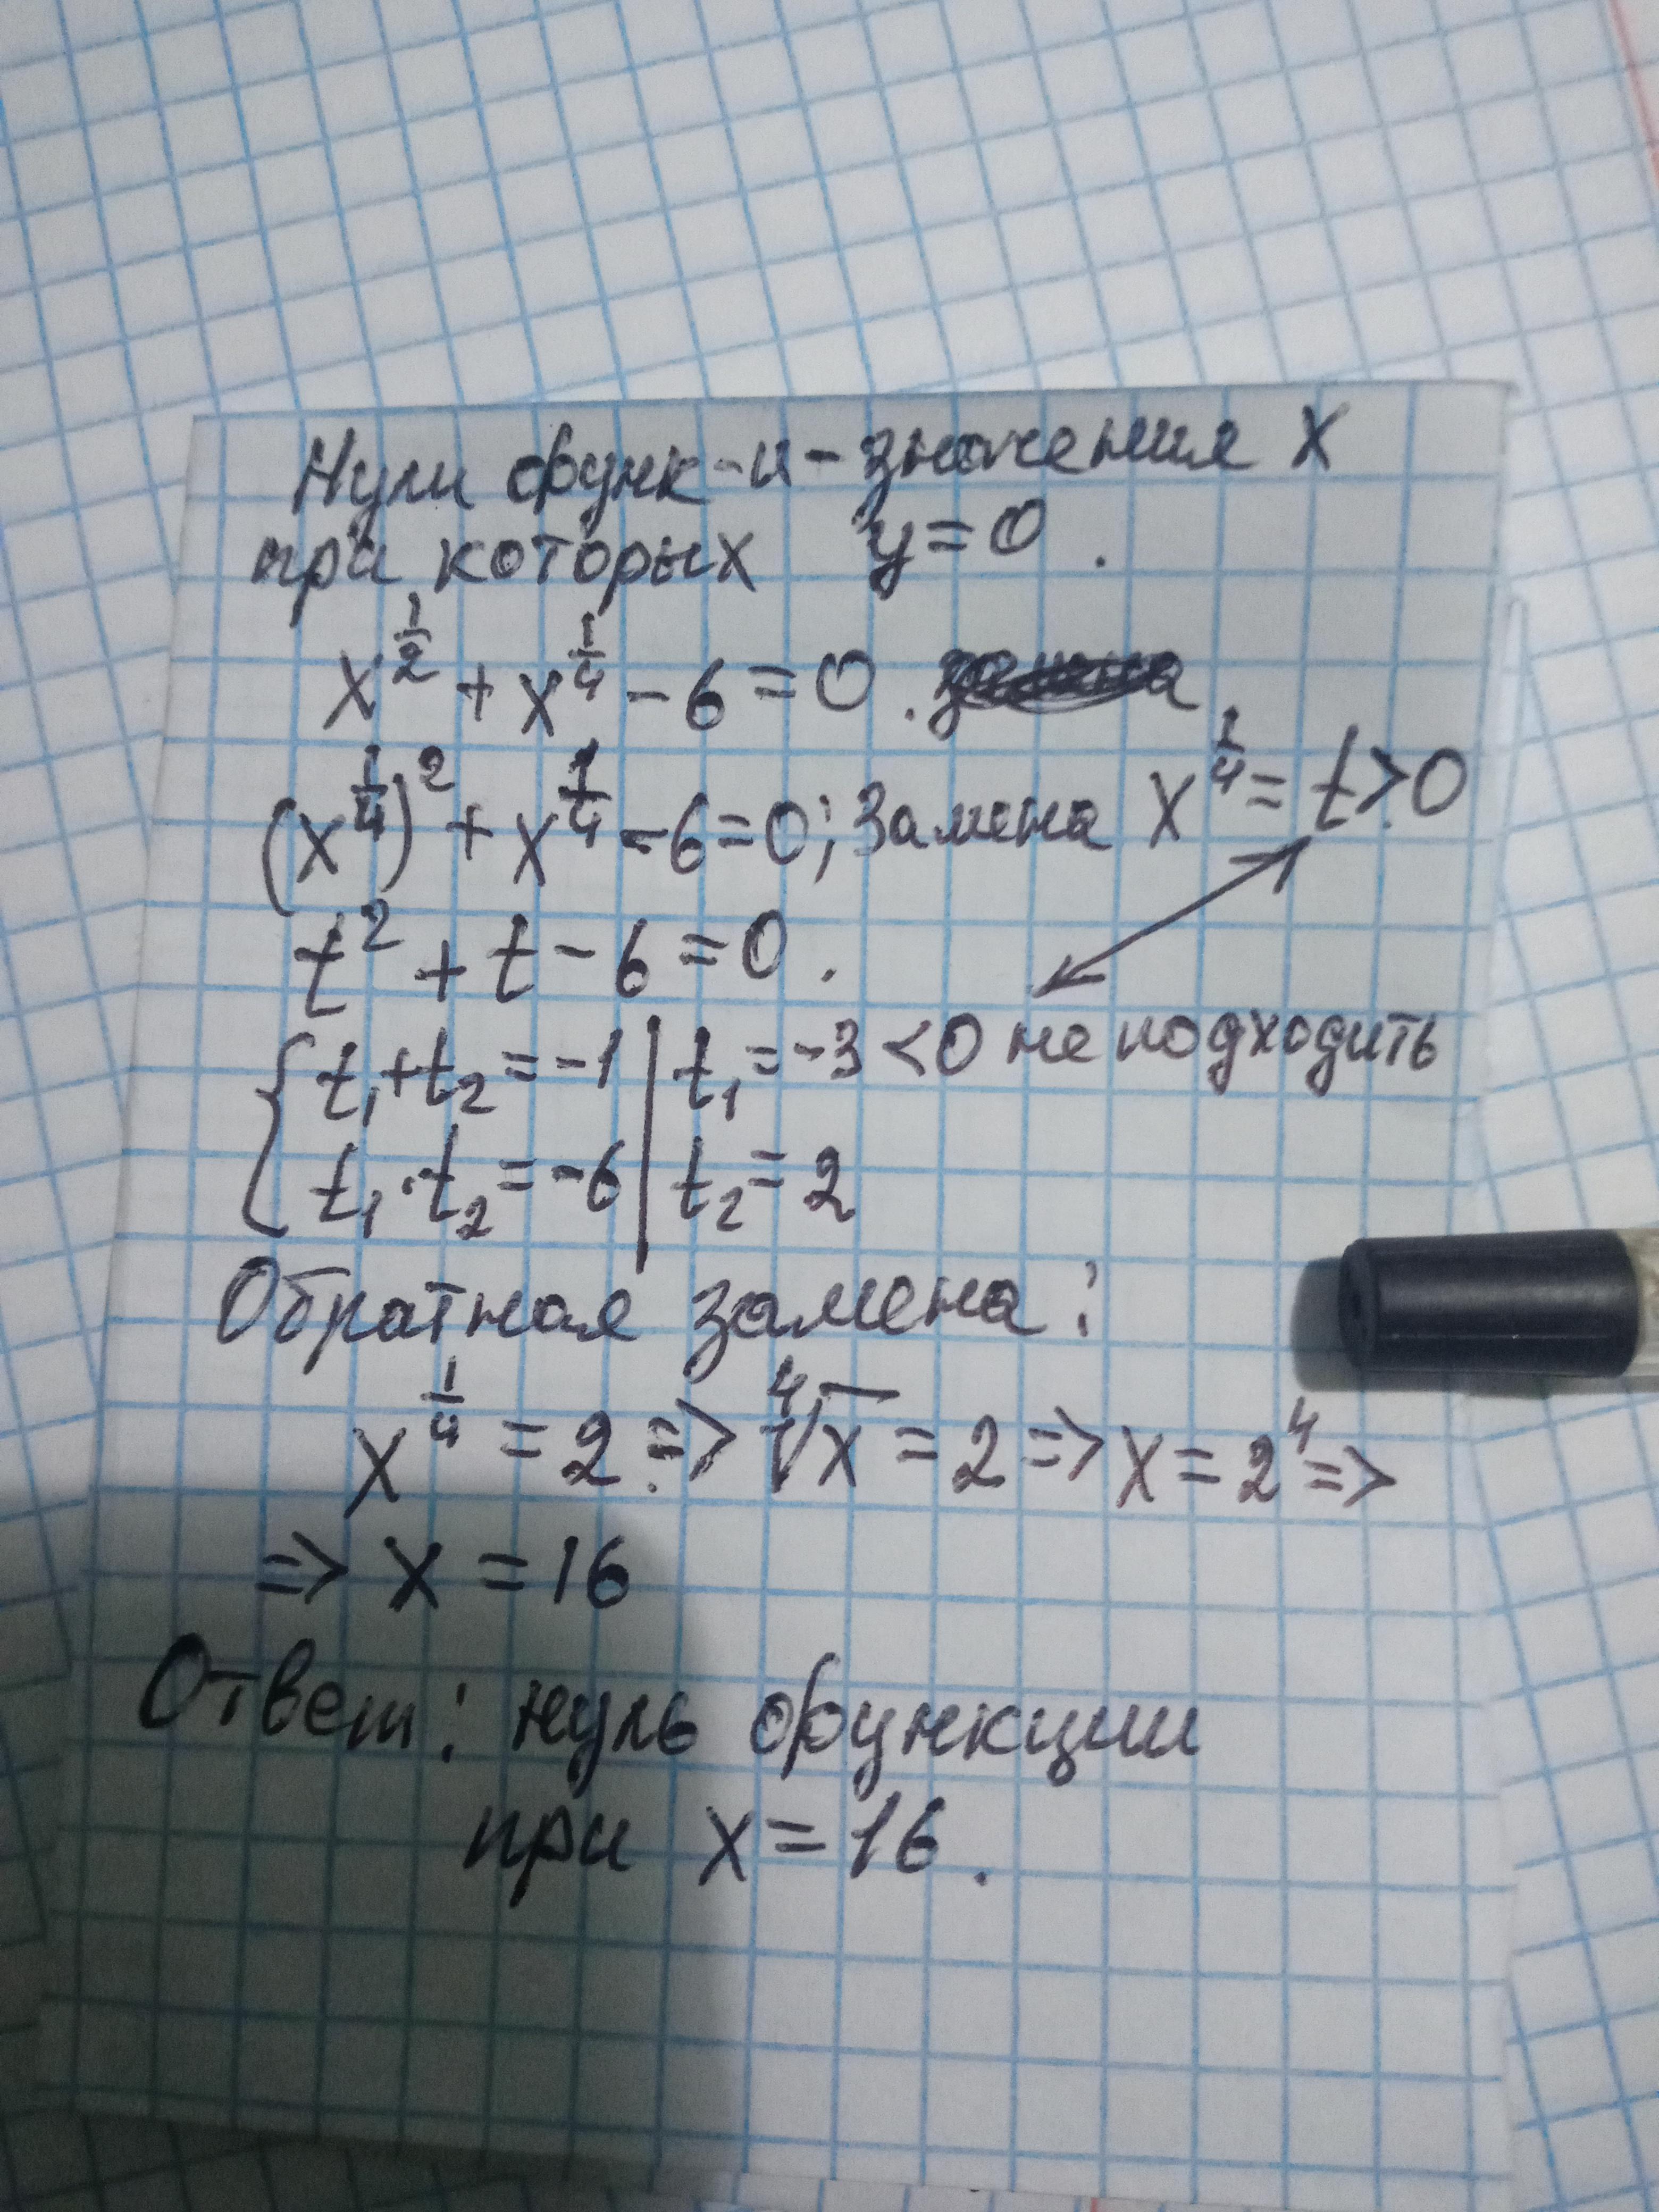 Нули функ-и-значения x
при которых y=0.
x^{1/2} + x^{1/4} - 6 = 0.
(x^{1/4})^2 + x^{1/4} - 6 = 0; Замена x^{1/4} = t > 0
t^2 + t - 6 = 0.
{ t₁+t₂ = -1 | t₁ = -3 < 0 не подходить
t₁·t₂ = -6 | t₂ = 2
Обратная замена:
x^{1/4} = 2 => ⁴√x = 2 => x = 2^4 =>
=> x = 16
Ответ: нуль функции
при x = 16.